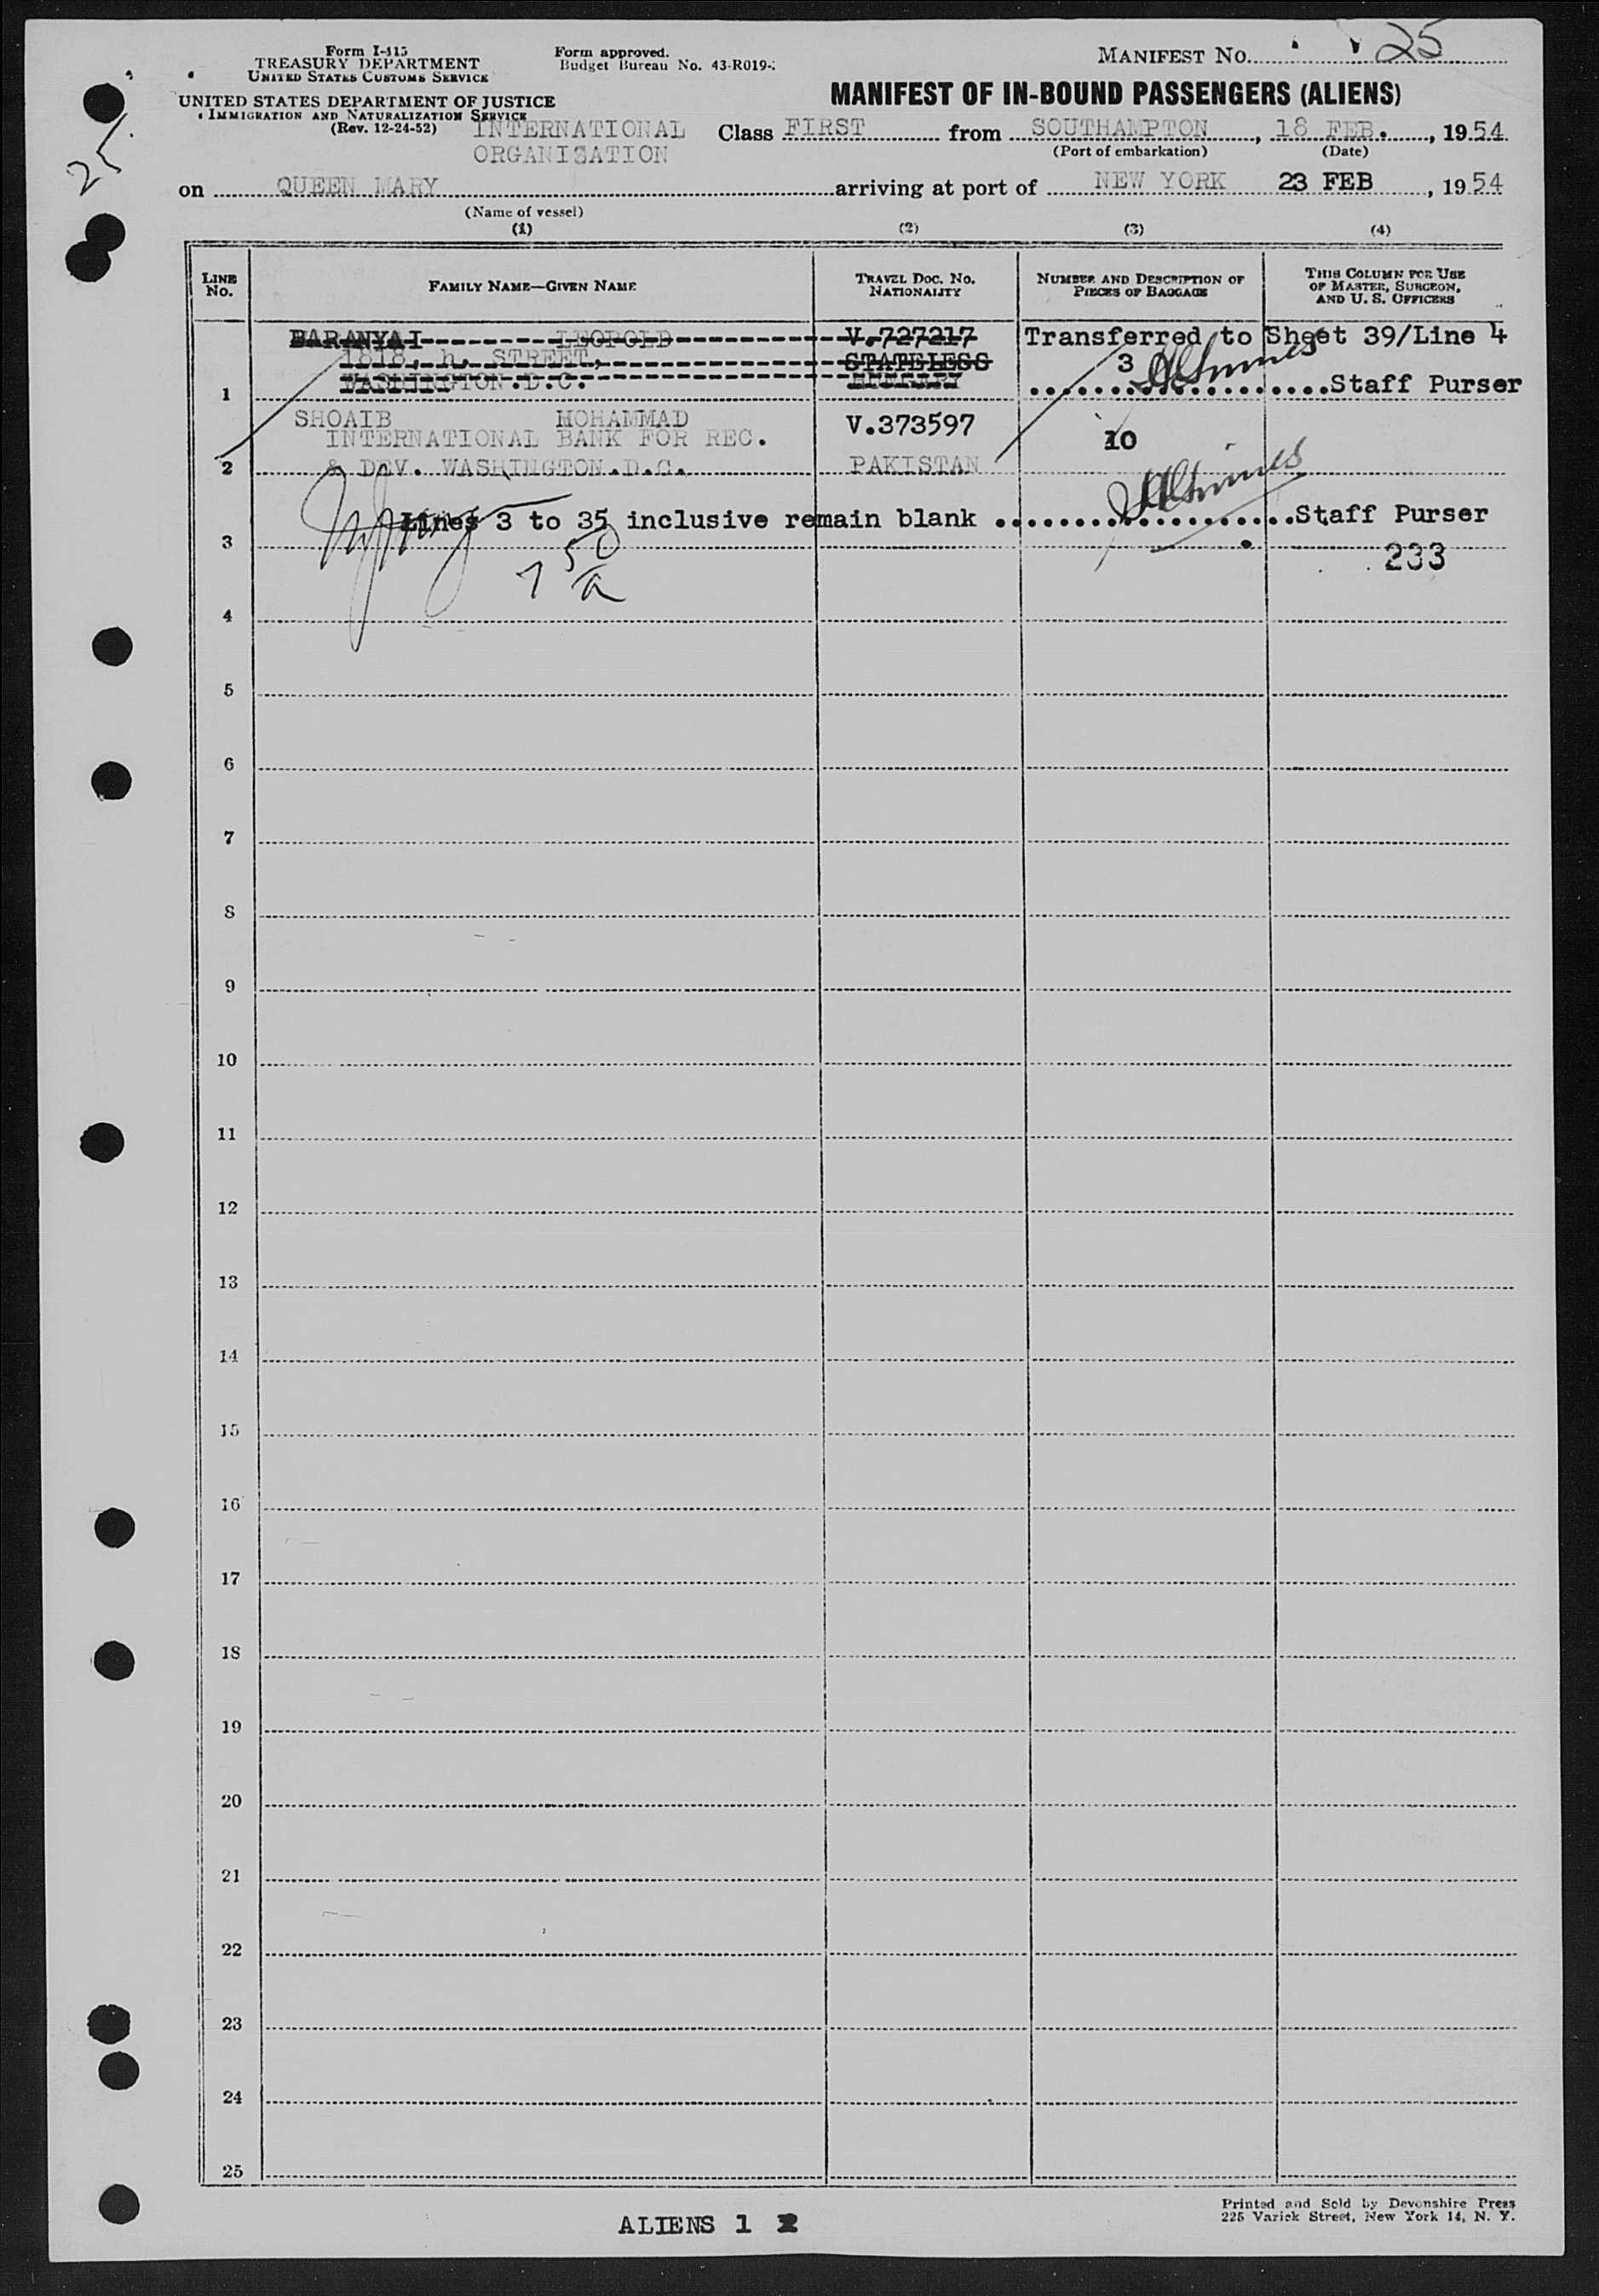 Form I-415
TREASURY DEPARTMENT
UNITED STATES CUSTOMS SERVICE
Form approved.
Budget Bureau No. 43-R019-
MANIFEST NO. 25
UNITED STATES DEPARTMENT OF JUSTICE
IMMIGRATION AND NATURALIZATION SERVICE
(Rev. 12-24-52)
MANIFEST OF IN-BOUND PASSENGERS (ALIENS)
25
INTERNATIONAL
ORGANISATION
Class FIRST from SOUTHAMPTON, 18 FEB., 1954
(Port of embarkation) (Date)
on QUEEN MARY arriving at port of NEW YORK 23 FEB, 1954
(Name of vessel)
(1) (2) (3) (4)
LINE No. FAMILY NAME—GIVEN NAME TRAVEL DOC. NO. NATIONALITY NUMBER AND DESCRIPTION OF PIECES OF BAGGAGE THIS COLUMN FOR USE OF MASTER, SURGEON, AND U. S. OFFICERS
BARANYAI LEOPOLD V.727217 Transferred to Sheet 39/Line 4
1818, h. STREET, STATELESS 3
1 WASHINGTON.D.C. Staff Purser
SHOAIB MOHAMMAD V.373597
INTERNATIONAL BANK FOR REC. 10
2 & DEV. WASHINGTON.D.C. PAKISTAN
Lines 3 to 35 inclusive remain blank Staff Purser
3 233
4
5
6
7
8
9
10
11
12
13
14
15
16
17
18
19
20
21
22
23
24
25
Printed and Sold by Devonshire Press
225 Varick Street, New York 14, N. Y.
ALIENS 1